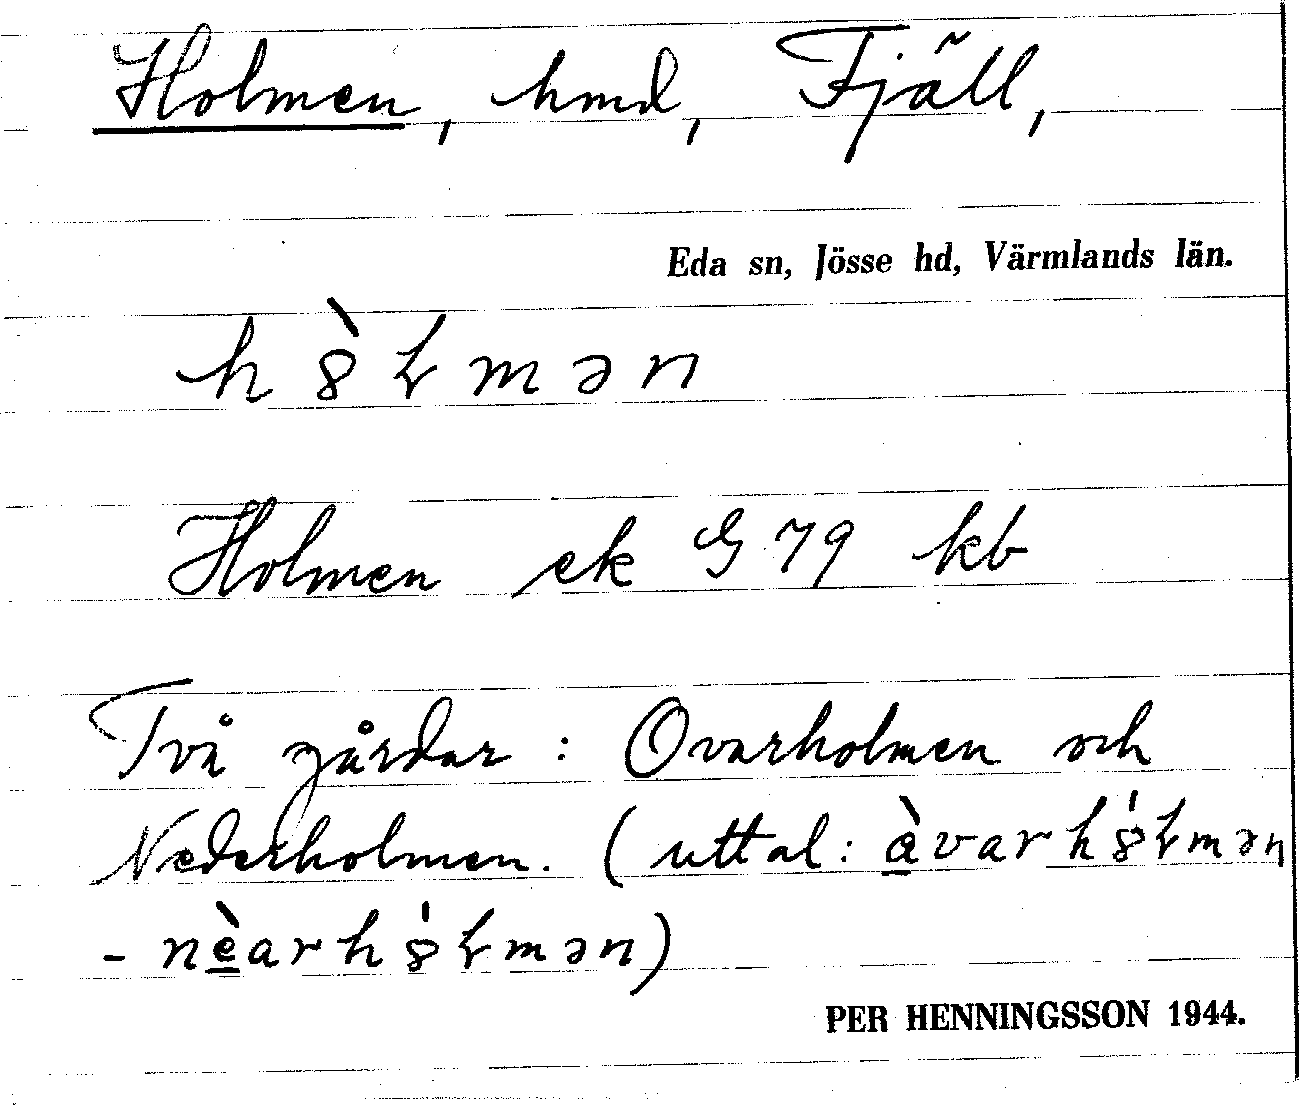 Holmen, hmd, Fjäll,
Eda sn, Jösse hd, Värmlands län.
h 8̀ ɫ m ə n
Holmen ek G 79 kb
Två gårdar : Ovarholmen och
Nederholmen. (uttal: à̲varh8̍ɫmən
- nè̲arh8̍ɫmən)
PER HENNINGSSON 1944.